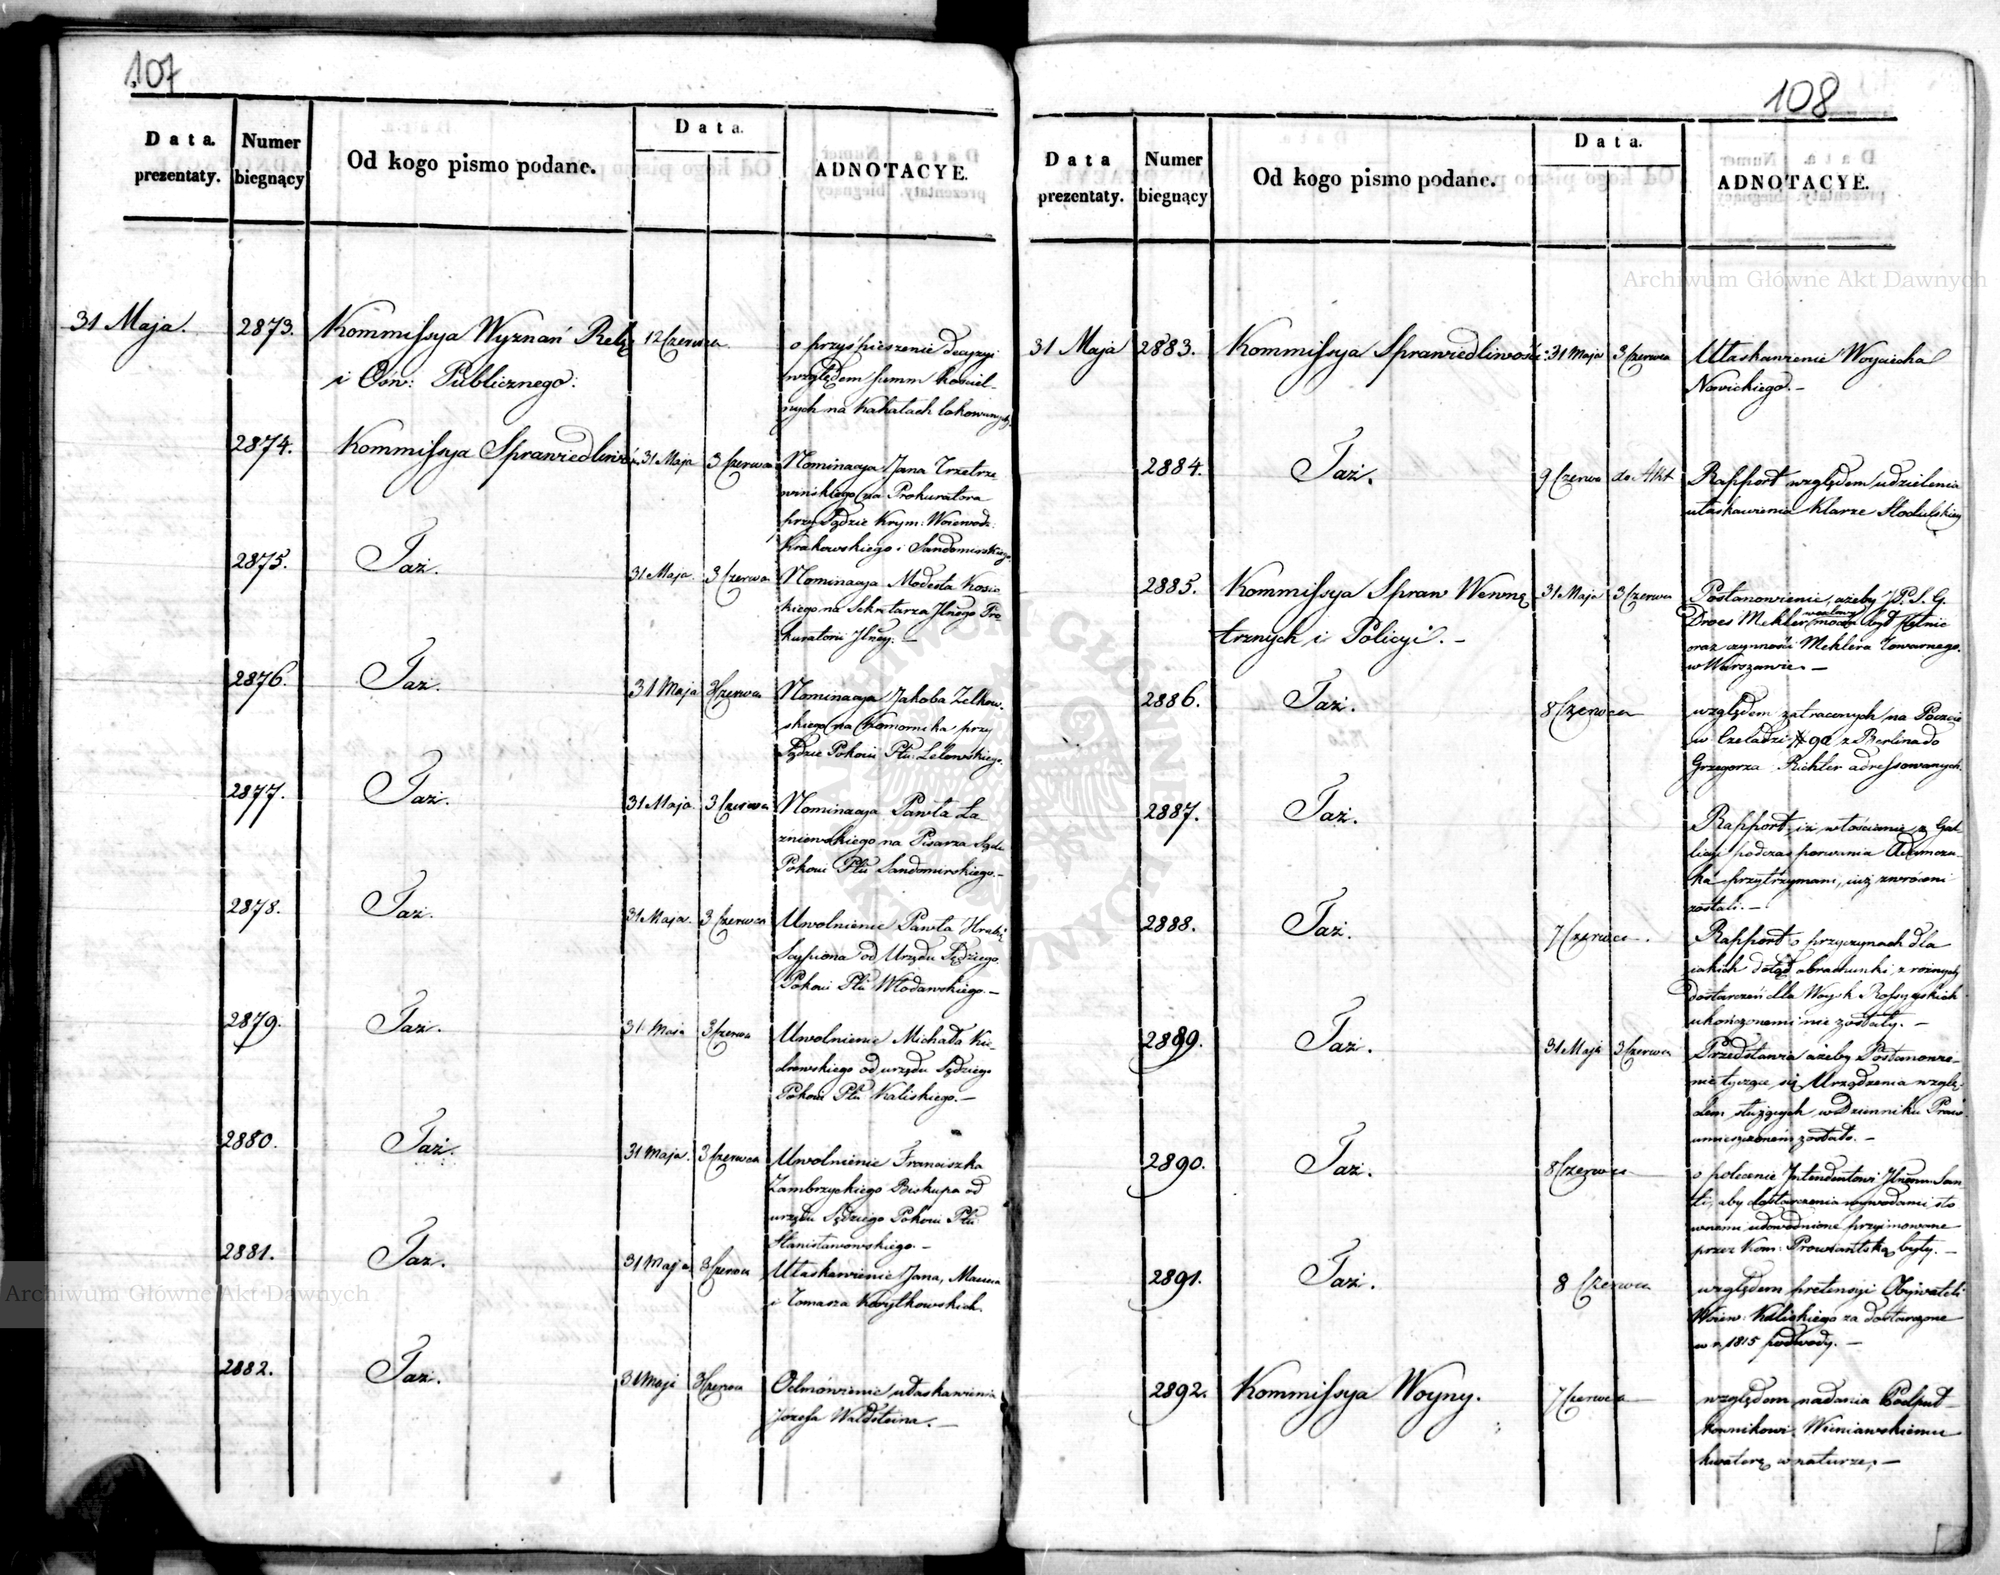 107
Data prezentaty.
Numer biegnący
Od kogo pismo podane.
Data.
ADNOTACYE.
31 Maja.
2873.
Kommissya Wyznań Relig
i Ośw: Publicznego:
12 Czerwca
o przyspieszenie decyzyi
względem summ kościel-
nych na Kahałach lokowanych
2874.
Kommissya Sprawiedliwoś:
31 Maja
3 Czerwca
Nominacya Jana Trzetrze
wińskiego na Prokuratora
przy Sądzie Krym: Woiewodz:
Krakowskiego i Sandomirskiego
2875.
Taż.
31 Maja.
3 Czerwca
Nominacya Modesta Kosic
kiego na Sekretarza Jlnego Pro
kuratorii Jlney. –
2876.
Taż.
31 Maja
3 Czerwca
Nominacya Jakoba Zelkow-
skiego na Komornika przy
Sądzie Pokoiu Ptu Lelowskiego.
2877.
Taż.
31 Maja
3 Czerwca
Nominacya Pawła Ła
zniewskiego na Pisarza Sądu
Pokoiu Ptu Sandomirskiego.–
2878.
Taż.
31 Maja.
3 Czerwca
Uwolnienie Pawła Hrabi
Scypiona od Urzędu Sędziego
Pokoiu Ptu Włodawskiego.–
2879.
Taż.
31 Maja
3 Czerwca
Uwolnienie Michała
od urzędu Sędziego
Pokoiu Ptu Kaliskiego.–
2880.
Taż.
31 Maja.
3 Czerwca
Uwolnienie Franciszka
Zambrzyckiego Biskupa od
urzędu Sędziego Pokoiu Ptu
Stanisławowskiego.–
2881.
Taż.
31 Maja
3 Czerwca
Ułaskawienie Jana,
i Tomasza
2882.
Taż.
31 Maja
3 Czerwca
Odmówienie ułaskawienia
Józefa Waldsteina.–
108
Data prezentaty.
Numer biegnący
Od kogo pismo podane.
Data.
ADNOTACYE.
31 Maja
2883.
Kommissya Sprawiedliwości:
31 Maja
3 Czerwca
Ułaskawienie Woyciecha
Nowickiego.–
2884.
Taż.
9 Czerwca
do Akt
Rapport względem udzielenia
ułaskawienia Klarze
2885.
Kommissya Spraw Wewnę
trznych i Policyi.–
31 Maja
3 Czerwca
Postanowienie, ażeby
oraz czynności Meklera Towarnego.
w Warszawie.–
2886.
Taż.
8 Czerwca
względem zatraconych na Poczcie
w Czeladzi # 90 z Berlina do
Grzegorza Richter adressowanych.
2887.
Taż.
Rapport, iż włościanie z Gal-
licyi podczas porwania Adamcza-
ka przytrzymani, iuż zwróceni
zostali.–
2888.
Taż.
7 Czerwca.
Rapport o przyczynach dla
iakich dotąd obrachunki z różnych
dostarczeń dla Woysk Rossyyskich
ukończonemi nie zostały.–
2899.
Taż.
31 Maja
3 Czerwca
Przedstawia ażeby Postanowie-
nie tyczące się Urządzenia wzglę-
dem służących, w Dzienniku Praw
umieszczonem zostało.–
2890.
Taż.
8 Czerwca
o polecenie Intendentowi Jlnemu
aby dostarczenia
udowodnione przyimowane
przez Kom: Prowiantską były.–
2891.
Taż.
8 Czerwca
względem pretensyi Obywateli
Woiew: Kaliskiego za dostarczone
w r. 1815 podwody.–
2892.
Kommissya Woyny.
7 Czerwca
względem nadania Podpuł-
kownikowi Wieniawskiemu
kwaterę w naturze,–
Archiwum Główne Akt Dawnych
Archiwum Główne Akt Dawnych